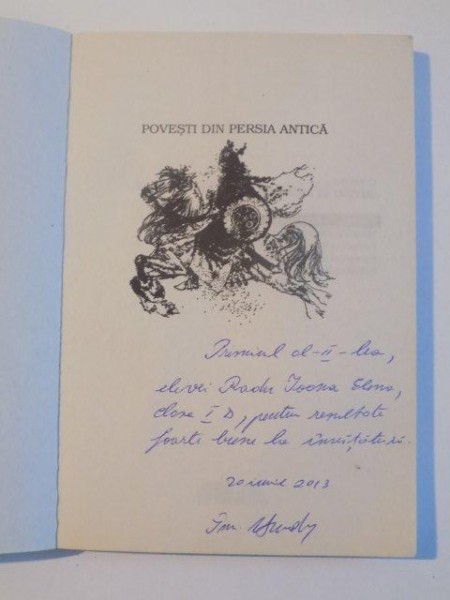 POVEȘTI DIN PERSIA ANTICĂ
Premiul al-II-lea,
elevei Radu Ioana Elena,
clasa I D, pentru rezultate
foarte bune la învățătură.
20 iunie 2013